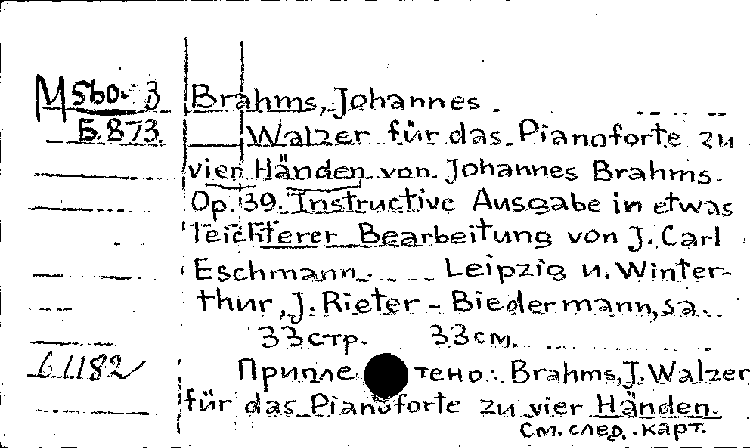 М 560-3 Brahms, Johannes.
Б.873 Walzer für das Pianoforte zu
vier Händen von Johannes Brahms.
Op. 39. Instructive Ausgabe in etwas
leichterer Bearbeitung von J. Carl
Eschmann. Leipzig u. Winter-
thur, J. Rieter-Biedermann, s.a.
33 стр. 33 см.
61182 Припле тено: Brahms, J. Walzer
für das Pianoforte zu vier Händen.
См. след. карт.